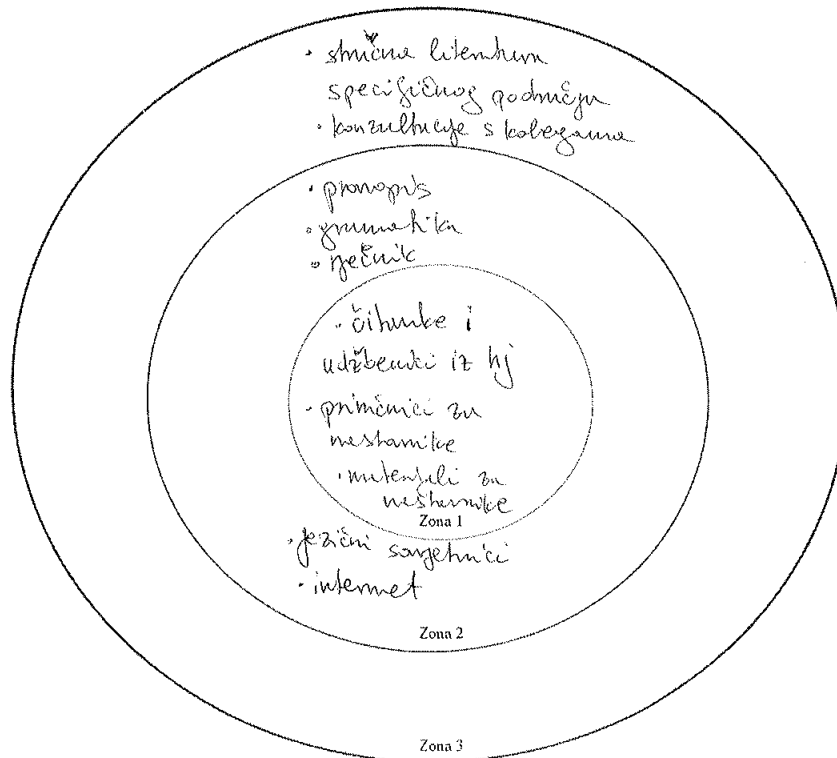 • stručna literatura
specifičnog područja
• konzultacije s kolegama
• pravopis
• gramatika
• rječnik
• čitanke i
udžbenici iz hj
• priručnici za
nastavnike
• materijali za
nastavnike
Zona 1
• jezični savjetnici
• internet
Zona 2
Zona 3